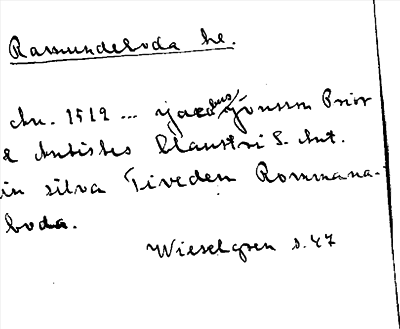 Ramundeboda hc.
An. 1512 ... Jacobus Jönsson Prior
& Antistes Claustri S. Ant.
in silva Tiveden Rommana-
boda.
Wieselgren s. 47